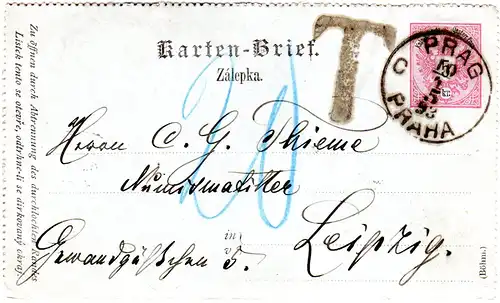 Karten-Brief.
Zálepka.
T
PRAG
PRAHA
C
kr
20
Herrn C. G. Thieme
Numismatiker
in
v
Leipzig.
Gewandgäßchen 5.
(Böhm.)
Zu öffnen durch Abtrennung des durchlochten Randes
Lístek tento se otevře, odtrhne-li se dírkovaný okraj.